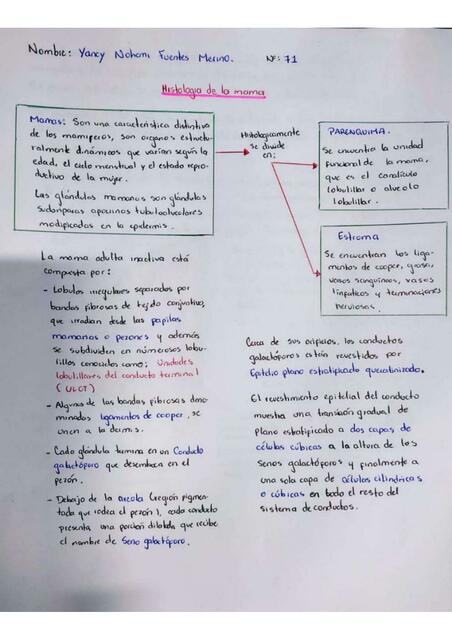 Nombre: Yancy Nohemi Fuentes Merino. Nº: 71
Histologia de la mama
Mamas: Son una caracteristica distintiva
de los mamiferos, son organos estructu-
ralmente dinámicos que varian según la
edad, el ciclo menstrual y el estado repro-
ductivo de la mujer.
Las glándulas mamarias son glándulas
sudoriparas apocrinas tubuloalveolares
modificadas en la epidermis.
Histologicamente
se divide
en:
PARENQUIMA.
Se encuentra la unidad
funcional de la mama,
que es el canaliculo
lobulillar o alveolo
lobulillar.
Estroma
Se encuentran los liga-
mentos de cooper, grasa,
vasos sanguineos, vasos
linfaticos y terminaciones
nerviosas.
La mama adulta inactiva está
compuesta por:
- Lobulos irregulares separados por
bandas fibrosas de tejido conjuntivo,
que irradian desde las papilas
mamarias o pezones y además
se subdividen en números lobu-
lillos conocidos como: Unidades
lobulillares del conducto terminal
(ULCT)
- Algunas de las bandas fibrosas deno-
minados ligamentos de cooper, se
unen a la dermis.
- Cada glándula termina en un Conducto
galactóforo que desemboca en el
pezón.
- Debajo de la areola (region pigmen-
tada que rodea el pezón), cada conducto
presenta una porción dilatada que recibe
el nombre de Seno galactóforo.
Cerca de sus orificios, los conductos
galactóforos están revestidos por
Epitelio plano estratificado queratinizado.
El revestimiento epitelial del conducto
muestra una transición gradual de
plano estratificado a dos capas de
células cúbicas a la altura de los
Senos galactóforos y finalmente a
una sola capa de células cilindricas
o cúbicas en todo el resto del
sistema de conductos.